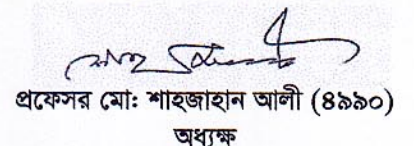 প্রফেসর মোঃ শাহজাহান আলী (৪৯৯০)
অধ্যক্ষ